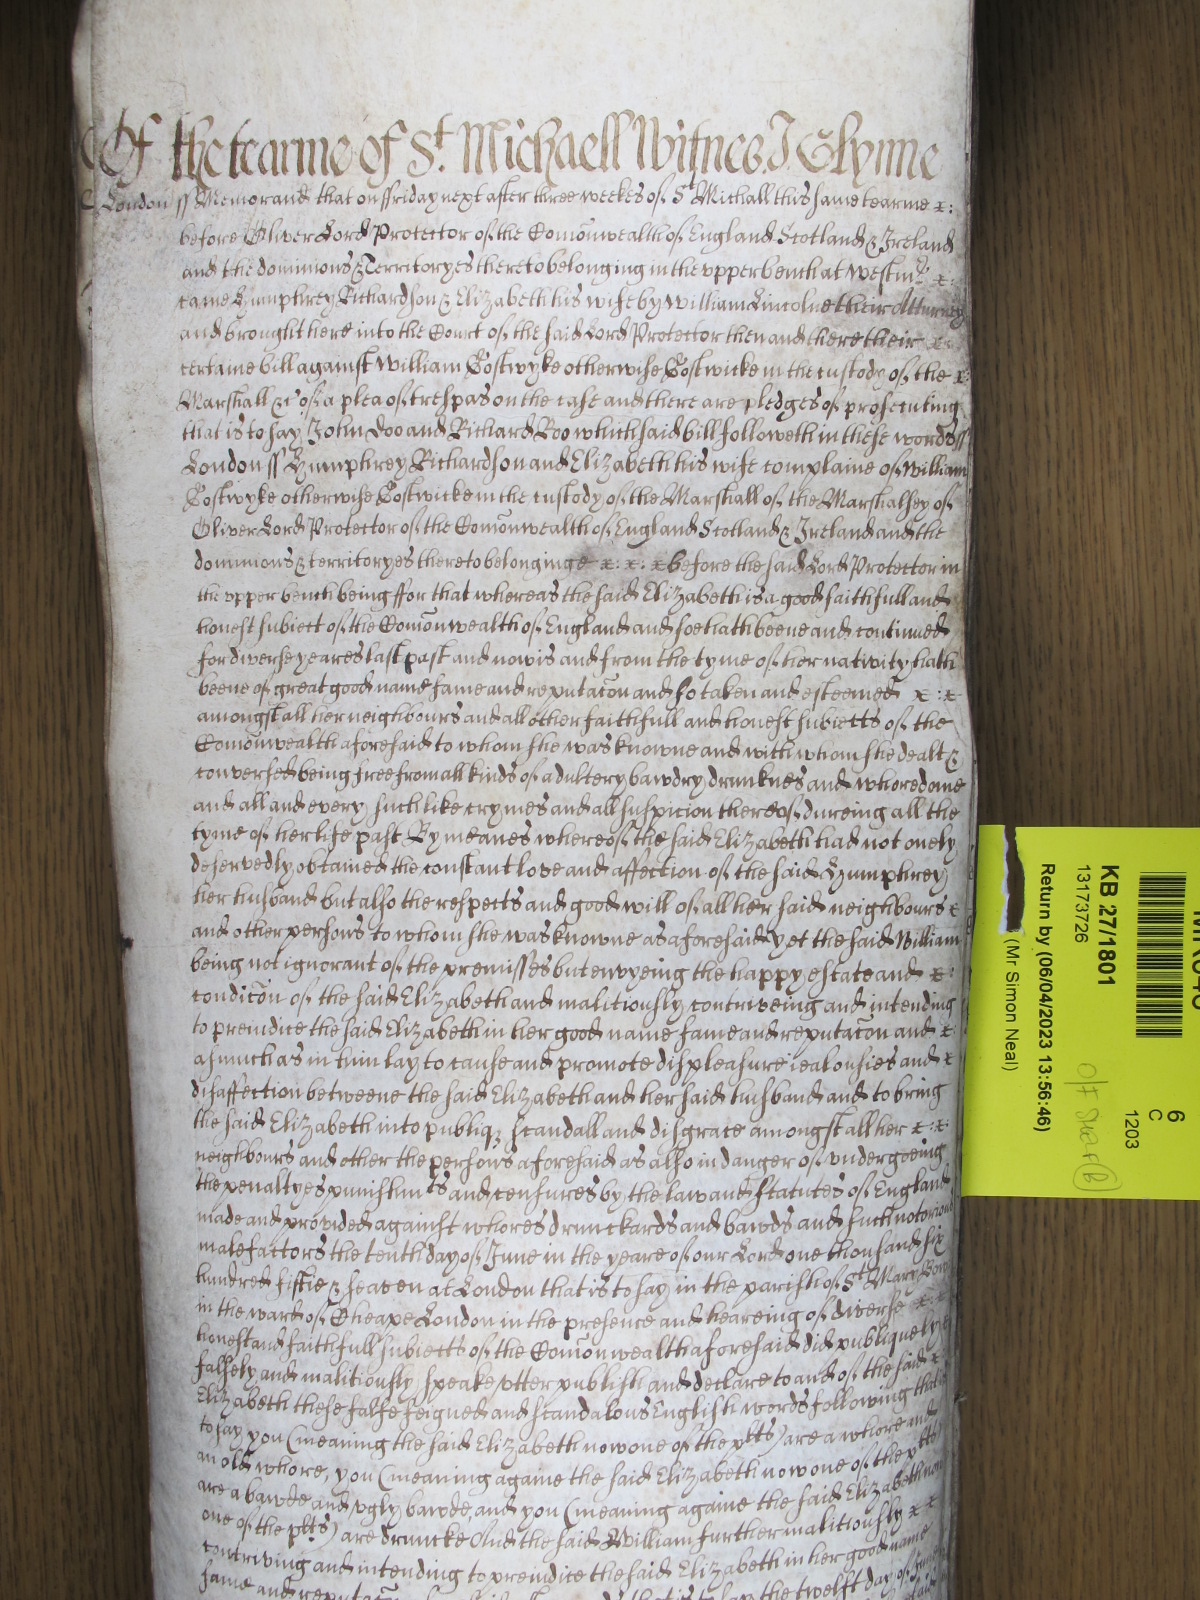 Of the tearme of St. Michaell Witnes J Glynne
London ss Memorand that on ffriday next after three weekes of St Michall this same tearme x:
before Oliver Lord Protector of the Comōnwealth of England Scotland & Ireland
and the dominions & Territoryes thereto belonging in the vpper bench at Westmr x:
came Humphrey Richardson & Elizabeth his wife by William Lincolne their Atturney
and brought here into the Court of the said Lord Protector then and there their x
certaine bill against William Costwyke otherwise Costwicke in the custody of the x:
Marshall &c of a plea of trespas on the case and there are pledges of prosecuting
that is to say John Doo and Richard Roo which said bill followeth in these words ss
London ss Humphrey Richardson and Elizabeth his wife complaine of William
Costwyke otherwise Costwicke in the custody of the Marshall of the Marshalsey of
Oliver Lord Protector of the Comōnwealth of England Scotland & Ireland and the
dominions & territoryes thereto belonginge x: x: x before the said Lord Protector in
the vpper bench being ffor that whereas the said Elizabeth is a good faithfull and
honest subiect of the Comōnwealth of England and soe hath beene and continued
for diverse yeares last past and now is and from the tyme of her nativity hath
beene of great good name fame and reputacōn and so taken and esteemed x : x
amongst all her neighbours and all other faithfull and honest subiects of the
Comōnwealth aforesaid to whom she was knowne and with whom she dealt &
conversed being free from all kinds of adultery bawdry drunknes and whoredome
and all and every such like crymes and all suspicion thereof dureing all the
tyme of her life past By meanes whereof the said Elizabeth had not onely
deservedly obtained the constant love and affection of the said Humphrey
her husband but also the respects and good will of all her said neighbours x
and other persons to whom she was knowne as aforesaid Yet the said William
being not ignorant of the premisses but envyeing the happy estate and x:
condicōn of the said Elizabeth and malitiously contriveing and intending
to preiudice the said Elizabeth in her good name fame and reputacōn and x
as much as in him lay to cause and promote displeasure iealousies and x
disaffection betweene the said Elizabeth and her said husband and to bring
the said Elizabeth into publiq; scandall and disgrace amongst all her x: x:
neighbours and other the persons aforesaid as also in danger of vndergoeing
the penaltyes punishmts and censures by the law and statutes of England
made and provided against whores drunckards and bawds and such notorious
malefactors the tenth day of June in the yeare of our Lord one thousand six
hundred fiftie & seaven at London that is to say in the parish of St Mary Bow
in the ward of Cheape London in the presence and heareing of diverse x: x
honest and faithfull subiects of the Comōnwealth aforesaid did publiquely
falsely and malitiously speake vtter publish and declare to and of the said x
Elizabeth these false feigned and scandalous English words following that is
to say you (meaning the said Elizabeth now one of the plts) are a whore and
an old whore, you (meaning againe the said Elizabeth now one of the plts)
are a bawde and vgly bawde, and you (meaning againe the said Elizabeth now
one of the plts) are druncke And the said William further malitiously x x
contriving and intending to preiudice the said Elizabeth in her good name
fame and reputacōn that is to say the twelft day of
KB 27/1801
13173726
Return by (06/04/2023 13:56:46)
(Mr Simon Neal)
6
C
1203